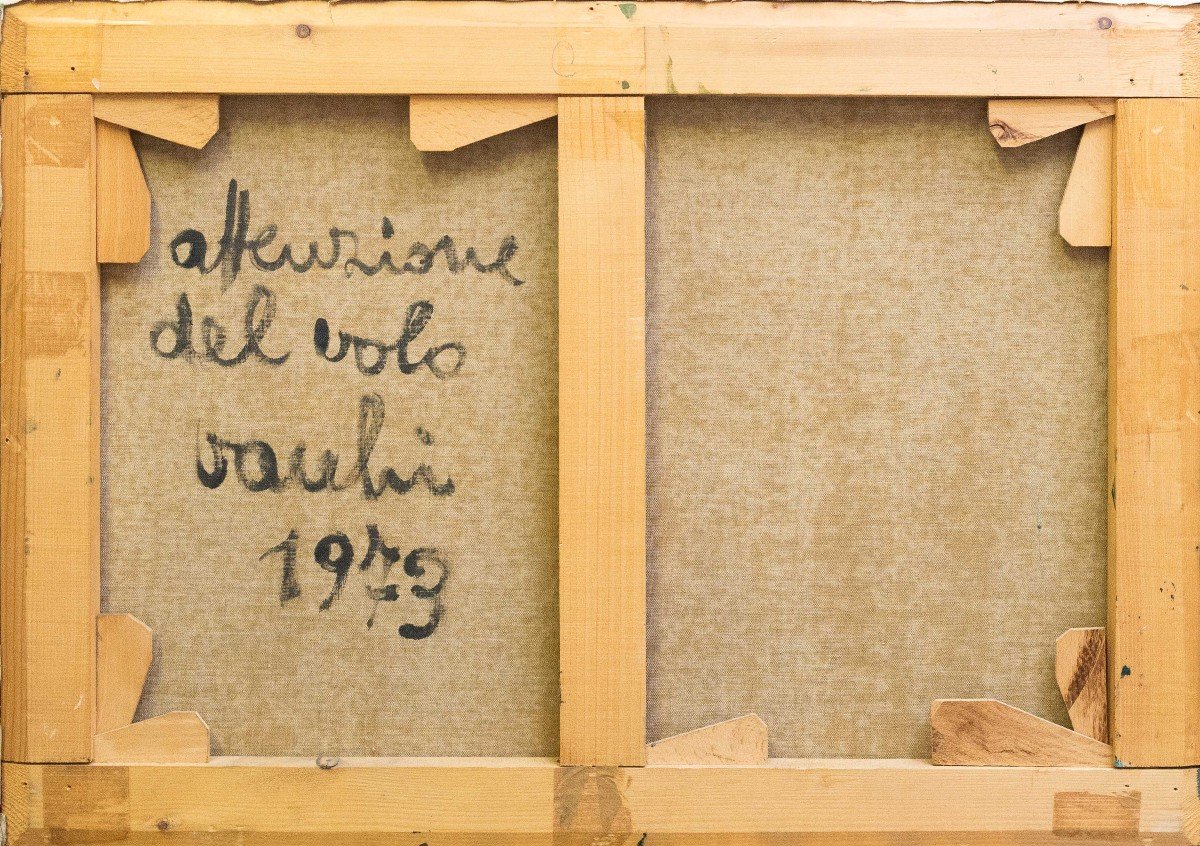 attenzione
del volo
vacchi
1973